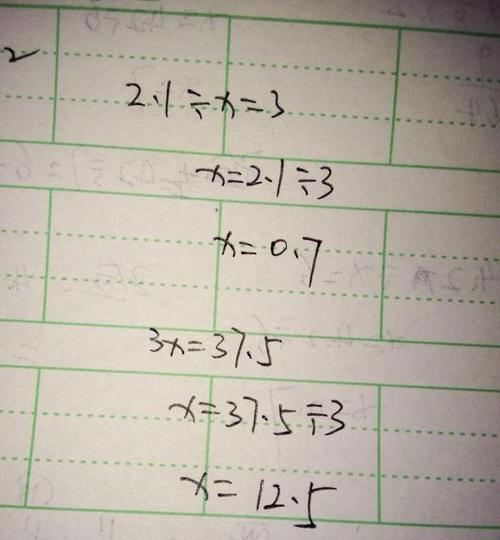 2.1÷x=3
x=2.1÷3
x=0.7
3x=37.5
x=37.5÷3
x=12.5